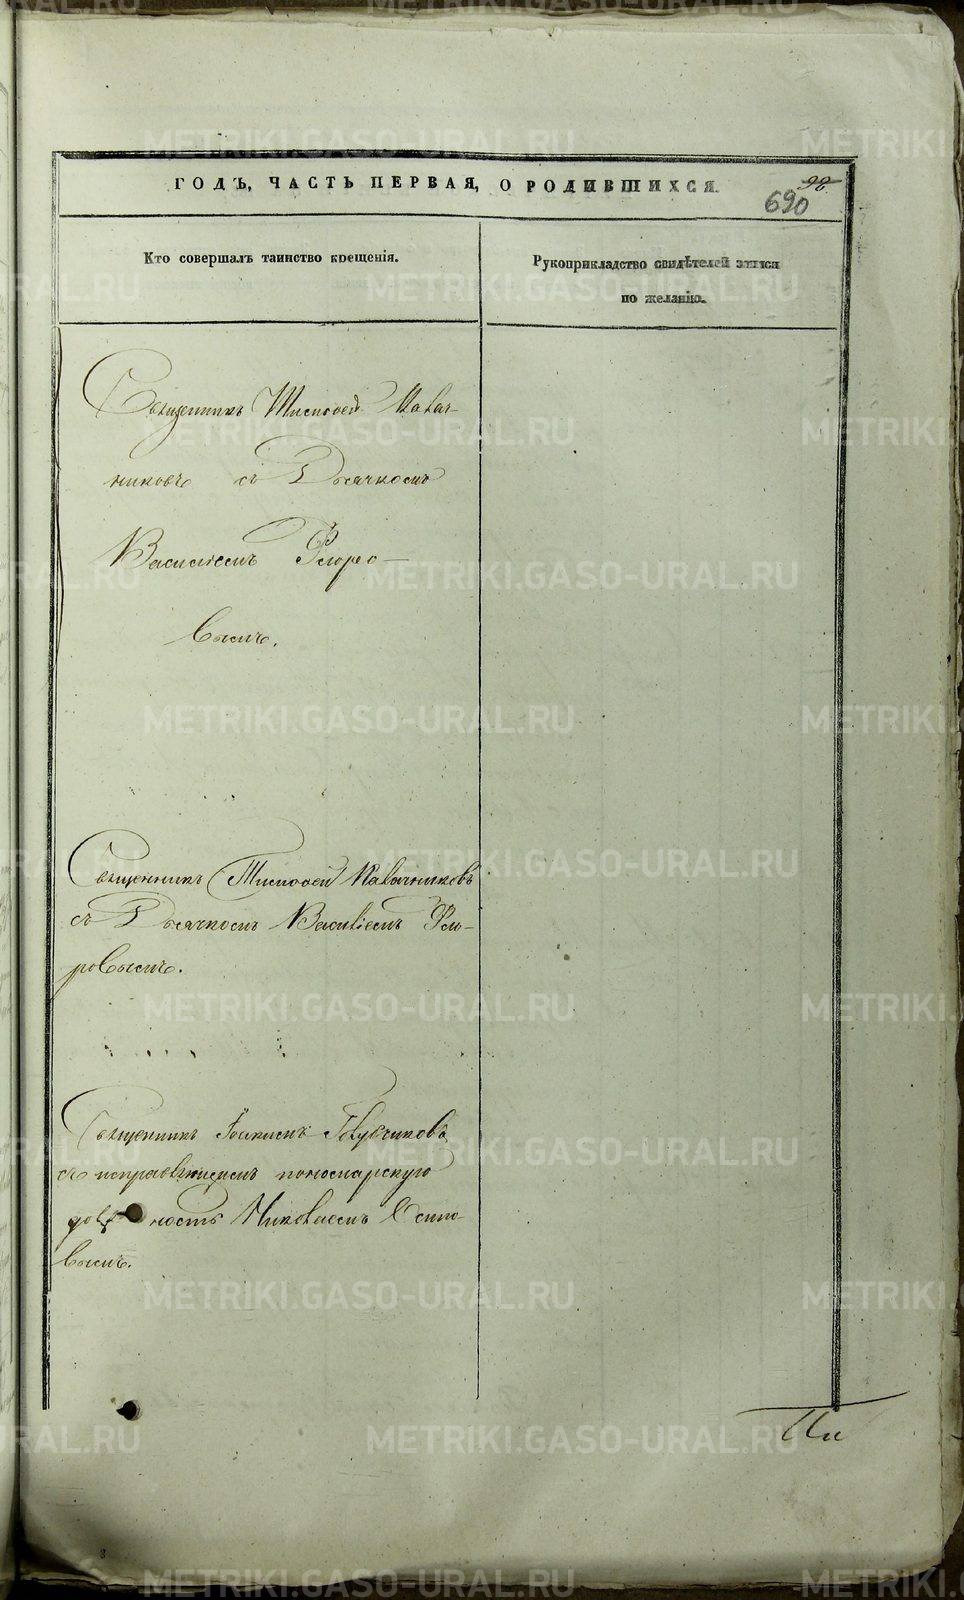 ГОДЪ, ЧАСТЬ ПЕРВАЯ, О РОДИВШИХСЯ.
98
690
Кто совершалъ таинство крещенія.
Рукоприкладство свидѣтелей записи
по желанію.
Священникъ Тимофей Калач-
никовъ съ Дьячкомъ
Василіемъ Флоро-
вымъ.
Священникъ Тимофей Калачниковъ
съ Дьячкомъ Василіемъ Фло-
ровымъ.
Священникъ Іоакимъ
съ исправляющимъ пономарскую
должность Николаемъ Осипо-
вымъ.
METRIKI.GASO-URAL.RU